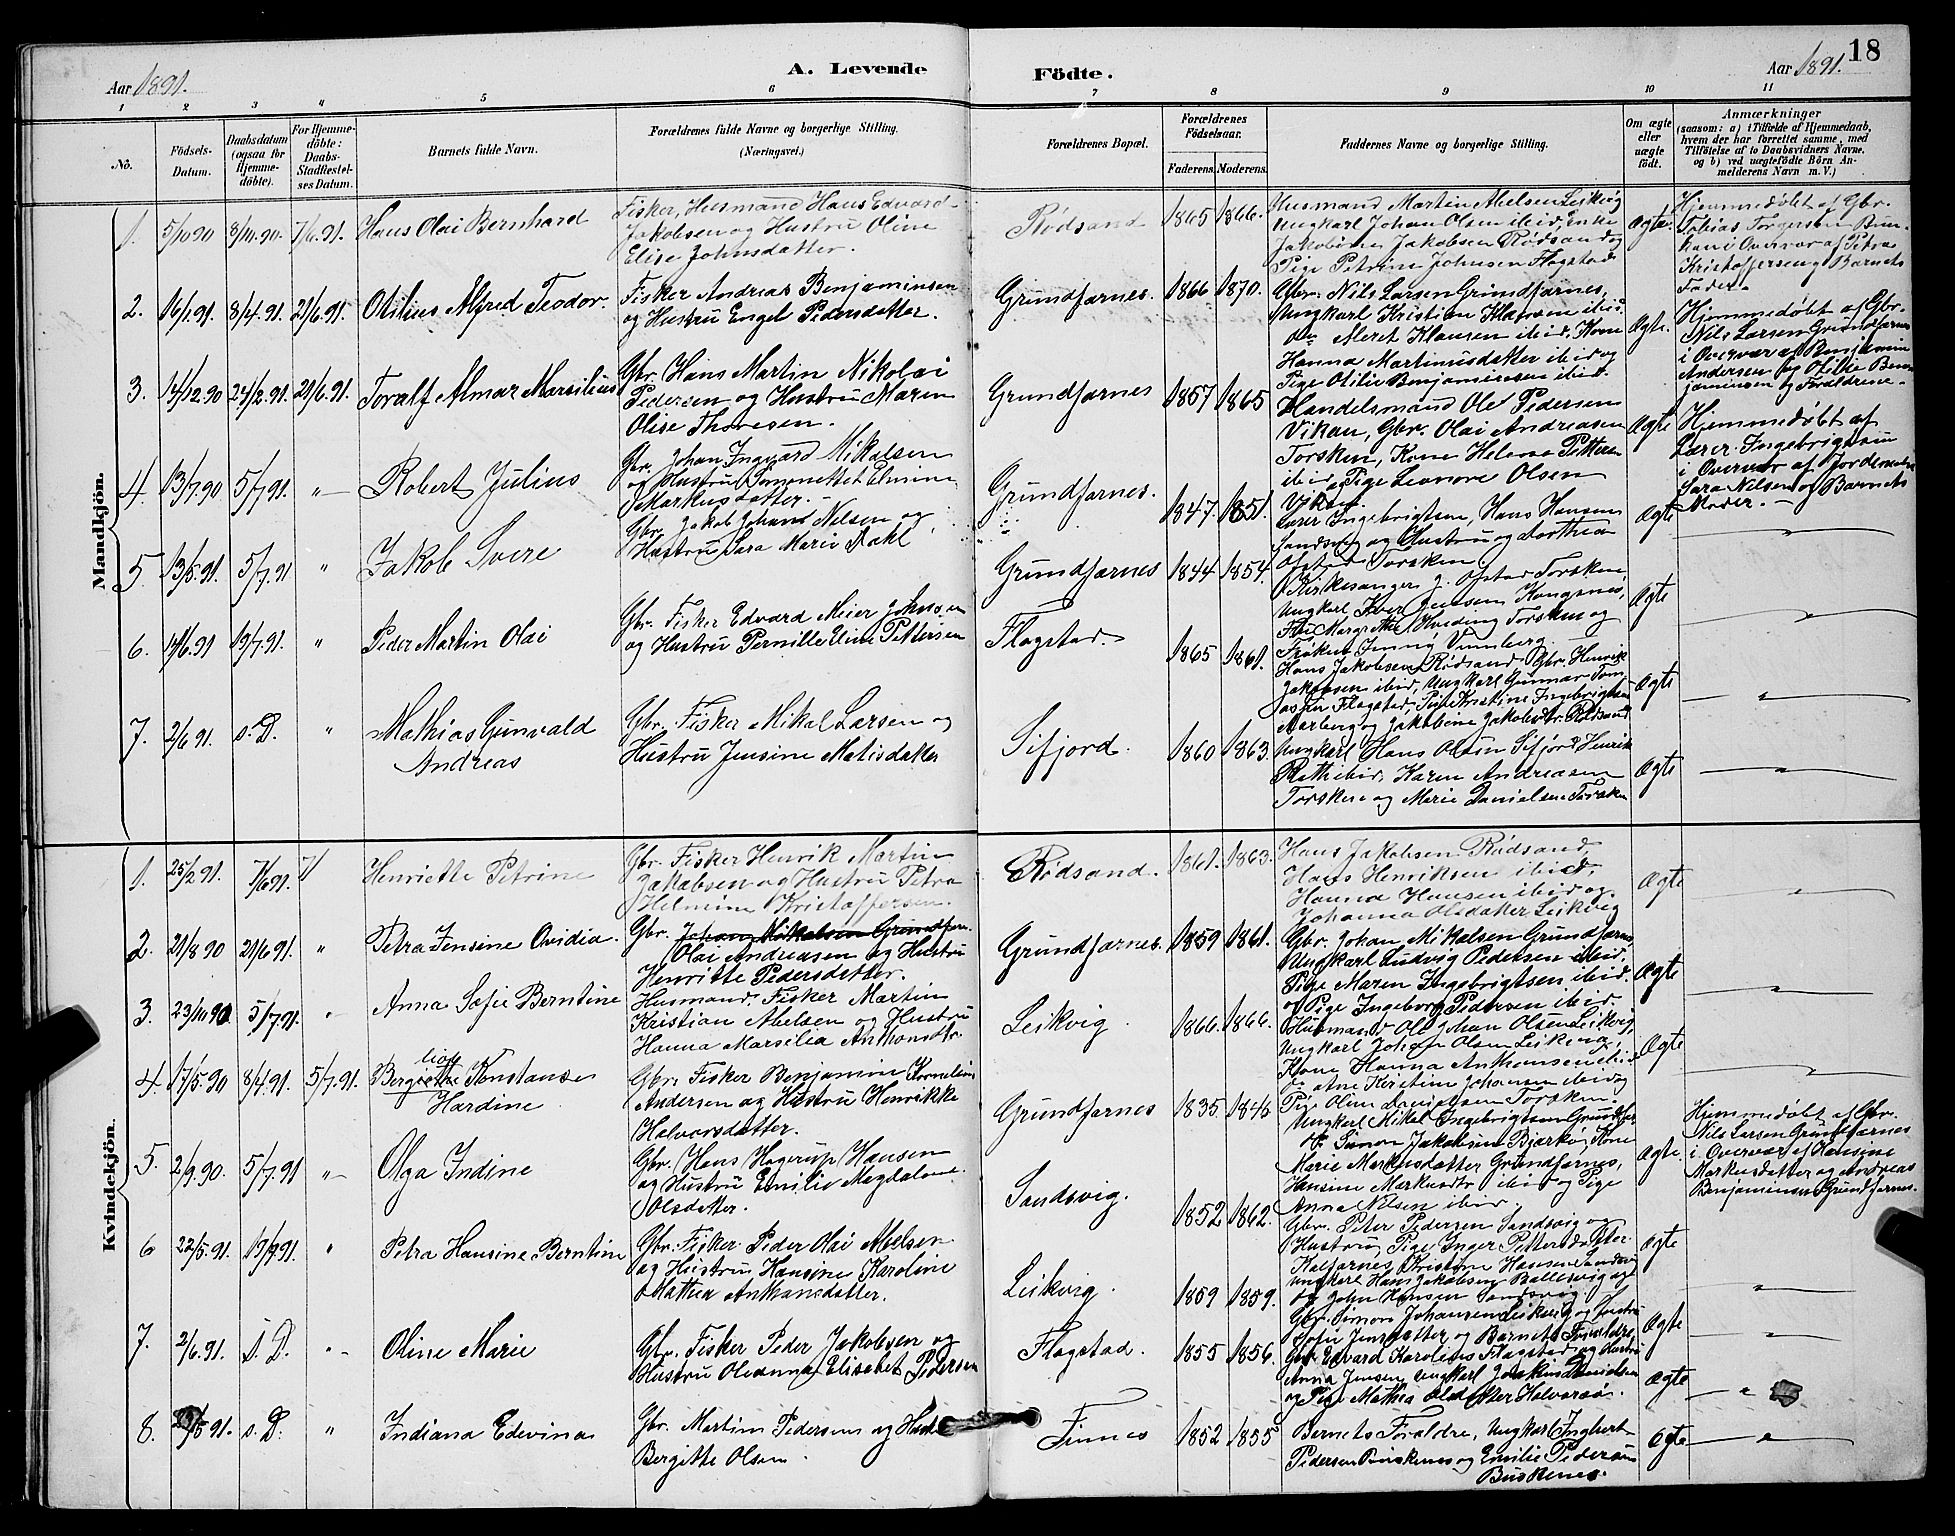 Aar 1891.
A. Levende
Födte.
Aar 1891.
18
1 2 3 4 5 6 7 8 9 10 11
No.
Födsels-Datum.
Daabsdatum (ogsaa for Hjemmedöbte).
For Hjemmedöbte: Daabs-Stadfestelses Datum.
Barnets fulde Navn.
Forældrenes fulde Navne og borgerlige Stilling. (Næringsvei.)
Forældrenes Bopæl.
Forældrenes Födselsaar.
Faderens. Moderens.
Faddernes Navne og borgerlige Stilling.
Om ægte eller uægte födt.
Anmærkninger
(saasom: a) i Tilfælde af Hjemmedaab,
hvem der har forrettet samme, med
Tilföielse af to Daabsvidners Navne,
og b) ved uægtefödte Börn Anmelderens Navn m. V.)
Mandkjön.
1. 5/10 90 8/10.90. 7/6.91. Hans Olai Bernhard
Fisker, Husmand Hans Edvard
Jakobsen og Hustru Oline
Elise Johnsdatter.
Rödsand 1865 1866.
Husmand Martin Abelsen Leikvig
Ungkarl Johan Olsen ibid, Enke
Jakobine Jakobsen Rödsand og
Pige Petrine Johnsen Flagstad
Ægte.
Hjemmedöbt af Gbr.
Tobias Torgersen
i Overvær af Petra
Kristoffersen og Barnets
Fader.
2. 16/1.91. 8/4.91. 21/6.91. Otilius Alfred Teodor.
Fisker Andreas Benjaminsen
og Hustru Engel Pedersdatter.
Grundfarnes. 1866 1870.
Gbr. Nils Larsen Grundfarnes,
Ungkarl Kristian Klausen ibid.
do Meret Klausen ibid, Kone
Hanna Martinusdatter ibid og
Pige Otilie Benjaminsen ibid.
Ægte.
Hjemmedöbt af Gbr.
Nils Larsen Grundfarnes
i Overvær af Benjamin
Andersen og Otilde Benjaminsen og Forældrene.
3. 14/12.90 24/2.91. 21/6.91. Toralf Almar Marsilius
Gbr. Hans Martin Nikolai
Pedersen og Hustru Maren
Olise Thoresen.
Grundfarnes 1857 1865
Handelsmand Ole Pedersen
Vikan, Gbr. Olai Andreasen
Torsken, Kone Helena Pettersen
ibid og Pige Leonore Olsen
Vikan.
Ægte
Hjemmedöbt af
Lærer Ingebrigtsen
i Overvær af Jordemoder
Sara Nilsen og Barnets
Moder.
4. 13/7.90 5/7.91. " Robert Julius
Gbr. Johan Ingvard Mikalsen
og Hustru Elmine
Markusdatter.
Grundfarnes. 1847. 1851.
Lærer Ingebrigtsen, Hans Hansen
Sandsvig og Hustru og Dorthea
Ofstad Torsken
Ægte
5. 13/5.91. 5/7.91 " Jakob Svere
Gbr. Jakob Johans Nilsen og
Hustru Sara Marie Dahl.
Grundfarnes 1844 1854.
Kirkesanger J. Ofstad Torsken,
Ungkarl Iver Jensen Kongsnes,
Margrethe Torsken og
Fröken Jenny
Ægte
6. 14/6.91 19/7.91. " Peder Martin Olai
Gbr. Fisker Edvard Meier Johnsen
og Hustru Pernille Eline Pettersen
Flagstad. 1865 1861.
Hans Jakobsen Rödsand, Gbr. Henrik
Jakobsen ibid, Ungkarl Gunnar
Flagstad, Pige Kristine Ingebrigtsen
og Jakobine Jakobsdtr. Rödsand
Ægte
7. 2/6 91. s. D. " Mathias Gunvald
Andreas
Gbr. Fisker Mikal Larsen og
Hustru Jensine Matisdatter
Sifjord. 1860 1863.
Ungkarl Hans Olsen Sifjord Henrik
ibid, Karen Andreasen
Torsken og Marie Danielsen Torsken
Ægte
Kvindekjön.
1. 25/2 91. 7/6 91. Henriette Petrine
Gbr. Fisker Henrik Martin
Jakobsen og Hustru Petra
Helmine Kristoffersen.
Rödsand. 1861. 1863.
Hans Jakobsen Rödsand,
Hans Henriksen ibid,
Hanna Hansen ibid og
Johanna Olsdatter Leikvig
Ægte
2. 21/8 90 21/6 91. " Petra Jensine Ovidia.
Gbr. Johan Mikalsen Grundfarn.
Olai Andreasen og Hustru
Henritte Pedersdatter.
Grundfarnes. 1859 1861.
Gbr. Johan Mikalsen Grundfarnes,
Ungkarl Ludvig Pedersen ibid,
Pige Maren Ingebrigtsen ibid
og Pige Ingeborg Pedersen ibid.
Ægte
3. 23/10 90. 5/7.91. Anna Sofie Berntine
Husmand, Fisker Martin
Kristian Abelsen og Hustru
Hanna Marselia Anthonsdtr.
Leikvig. 1866. 1866.
Husmand Ole Johan Olsen Leikvig,
Ungkarl Johan Olsen Leikvig,
Kone Hanna Anthonsen ibid
Kirstine Johansen ibid og
Pige Oline Danielsen Torsken.
Ægte
4. 17/5.90 8/4.91. 5/7.91. Konstanse
Hardine
Gbr. Fisker Benjamin Kornelius
Andersen og Hustru Henrikke
Halvorsdatter.
Grundfarnes 1835 1846
Ungkarl Mikal Ingebrigtsen Grundfar
Simon Jakobsen Bjarkö, Kone
Marie Markusdatter Grundfarnes,
Hansine Markusdtr ibid og Pige
Anna Nilsen ibid.
Ægte.
Hjemmedöbt af Gbr.
Nils Larsen Grundfarnes
i Overvær af Hansine
Markusdatter og Andreas
Benjaminsen Grundfarnes.
5. 2/9.90. 5/7.91 " Olga Indine
Gbr. Hans Hagerup Hansen
og Hustru Emilie Magdalone
Olsdatter.
Sandsvig. 1852 1862.
Gbr. Peter Pedersen Sandsvig og
Hustru, Pige Inger Pettersdatter
Kalfarnes, Kristine Hansen Sandsvig
Ungkarl Hans Jakobsen Ballesvig og
John Hansen Sandsvig
Ægte
6 22/5.91. 19/7.91. " Petra Hansine Berntine
Gbr. Fisker Peder Olai Abelsen
og Hustru Hansine Karoline
Mathea Anthonsdatter.
Leikvig. 1859 1859.
Gbr. Simon Johansen Leikvig og Hustru
Sofie Jensdatter og Barnets Forældre,
Ægte
7. 2/6.91. s. D. " Oline Marie
Gbr. Fisker Peder Jakobsen og
Hustru Oleanna Elisabet Pedersen
Flagstad. 1855 1856.
Gbr. Edvard Karolius Flagstad og Hustru
Anna Jensen, Ungkarl Danielsen
og Pige Mathea Olsdatter Halvarsö.
Ægte
8. /5 91. s. D. " Indiana Edevina
Gbr. Martin Pedersen og
Bergitte Olsen.
Finnes 1852 1855
Bernets Foraldre, Ungkarl Ingbert
Pedersen og Emilie Pedersen
Buskenes.
Ægte